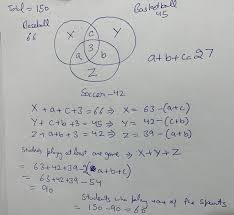 Total = 150
Baseball
66
Basketball
45
X
c
Y
3
a
b
Z
a+b+c=27
Soccer-42
X + a+c+3 = 66 ⇒ X = 63-(a+c)
Y + c+b+3 = 45 ⇒ Y = 42-(c+b)
Z + a+b+3 = 42 ⇒ Z = 39-(a+b)
Students playing at least one game ⇒ X+Y+Z
= 63+42+39-2(a+b+c)
= 63+42+39-54
= 90
Students who play none of the sports
= 150-90=60